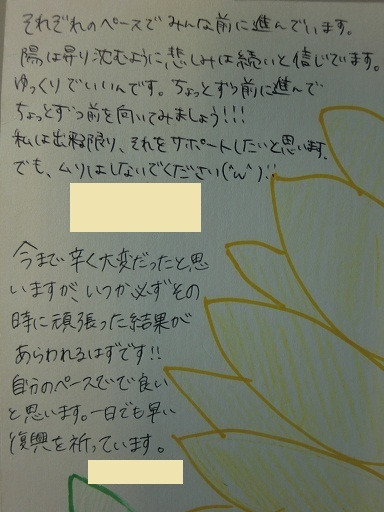 それぞれのペースでみんな前に進んでいます。
陽は昇り沈むように悲しみは続いと信じています。
ゆっくりでいいんです。ちょっとずつ前に進んで
ちょっとずつ前を向いてみましょう!!!
私は出来る限り、それをサポートしたいと思います。
でも、ムリはしないでください(^w^)!!
今まで辛く大変だったと思
いますが、いつか必ずその
時に頑張った結果が
あらわれるはずです!!
自分のペースでで良い
と思います。一日でも早い
復興を祈っています。